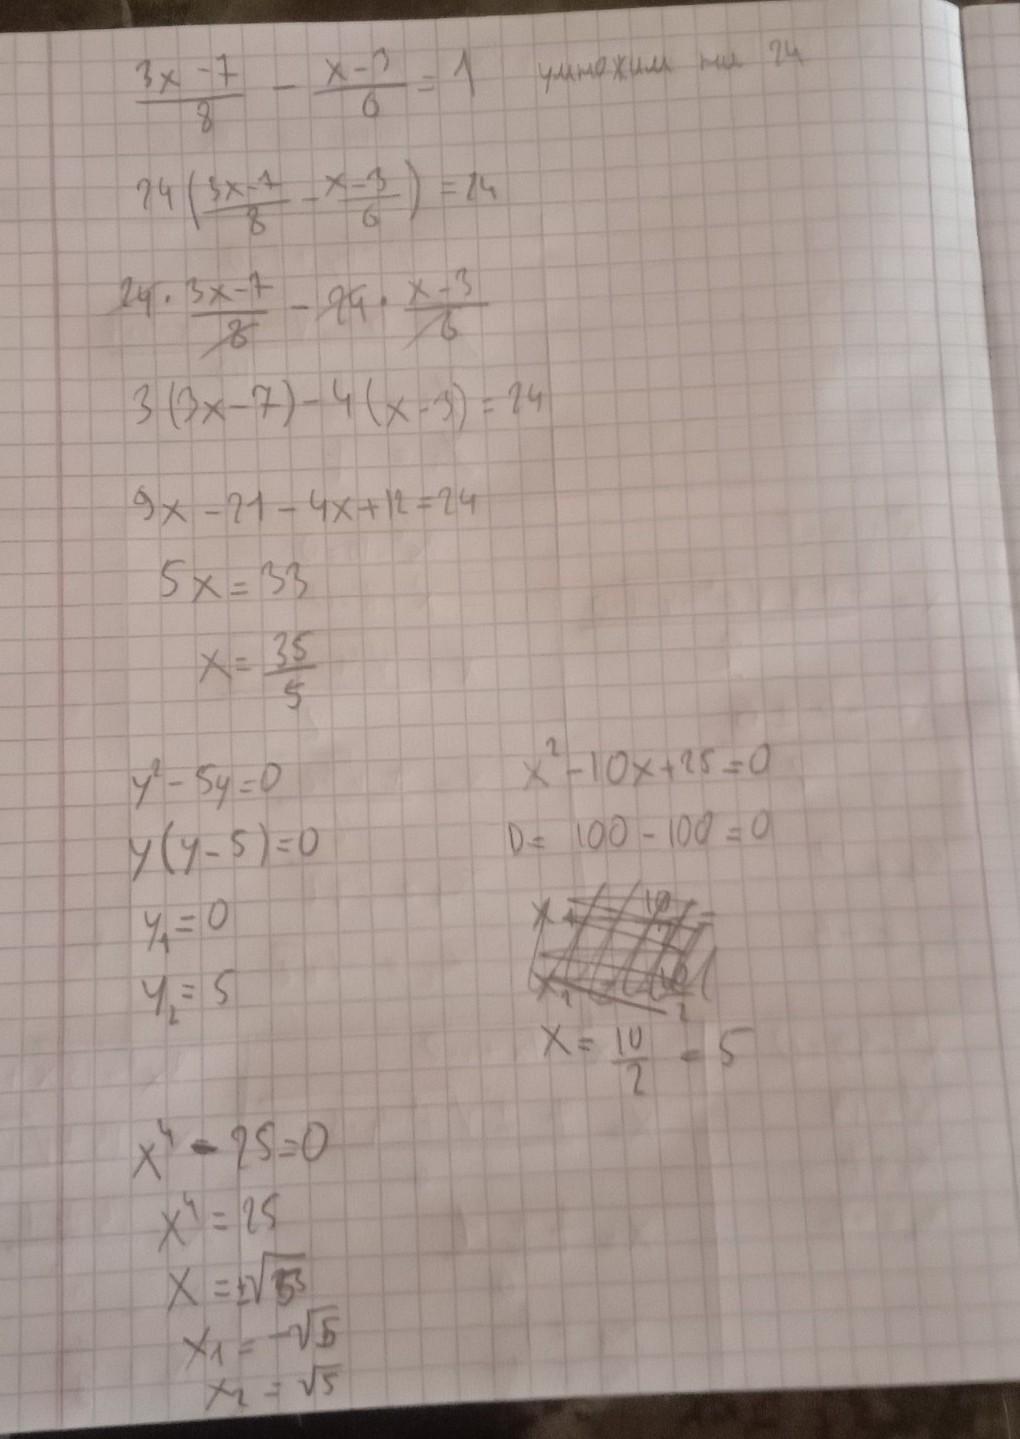 (3x-7)/8 - (x-3)/6 = 1 умножим на 24
24((3x-7)/8 - (x-3)/6) = 24
24 · (3x-7)/8 - 24 · (x-3)/6
3(3x-7)-4(x-3)=24
9x-21-4x+12=24
5x=33
x=35/5
y²-5y=0
y(y-5)=0
y₁=0
y₂=5
x²-10x+25=0
D= 100-100=0
x=10/2 = 5
x⁴-25=0
x⁴=25
x=±√5
x₁=-√5
x₂=√5